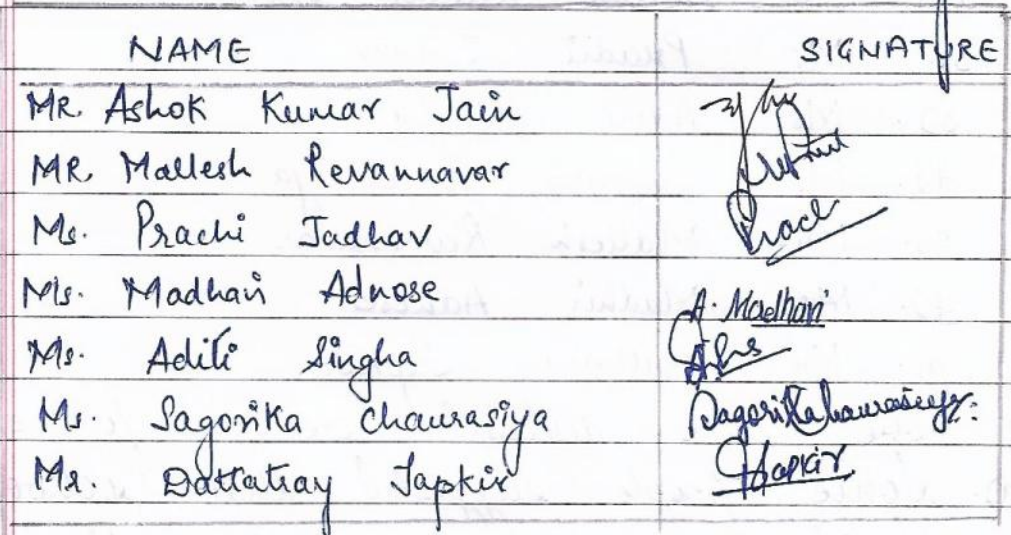 NAME SIGNATURE
MR. Ashok Kumar Jain
MR. Mallesh Revannavar
Ms. Prachi Jadhav Prach
Ms. Madhavi Adnose A. Madhavi
Ms. Aditi Singha
Ms. Sagorika Chaurasiya Sagorika Chaurasiya
Mr. Dattatray Tapkir Tapkir